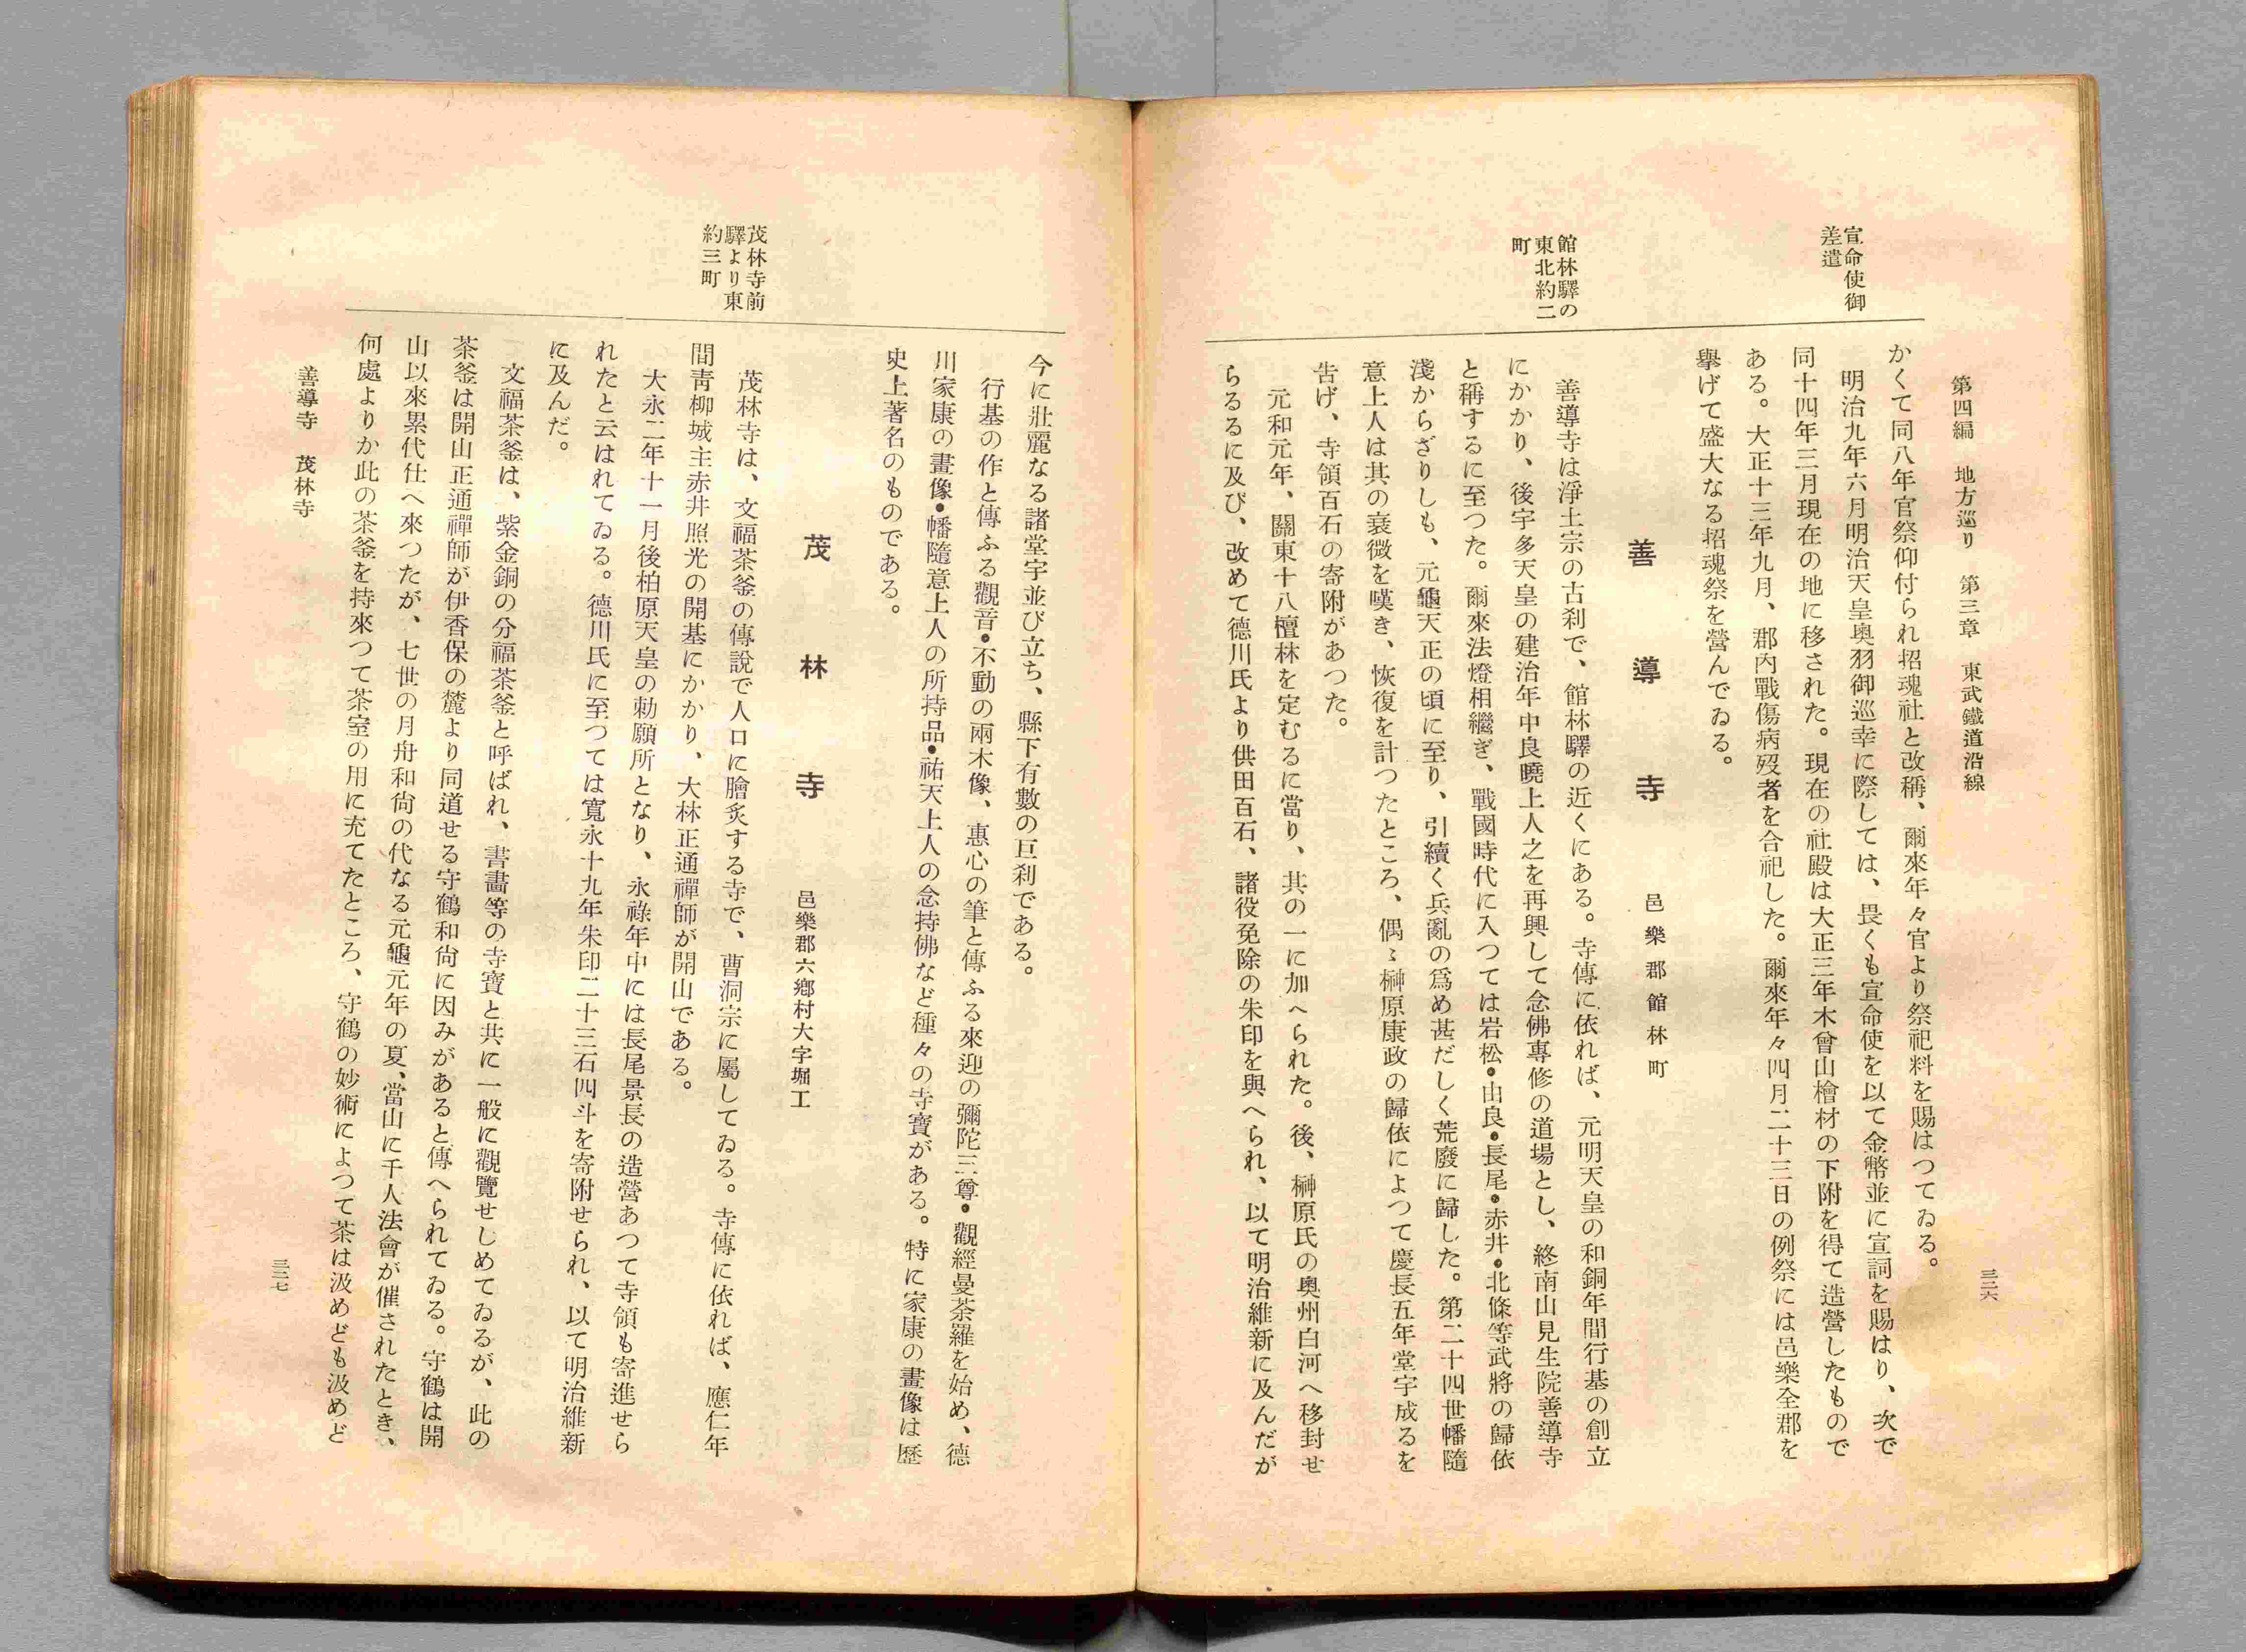 第四編　地方巡り　第三章　東武鐵道沿線
三二六
宣命使御
差遣
かくて同八年官祭仰付られ招魂社と改稱、爾來年々官より祭祀料を賜はつてゐる。
明治九年六月明治天皇奧羽御巡幸に際しては、畏くも宣命使を以て金幣並に宣詞を賜はり、次で
同十四年三月現在の地に移された。現在の社殿は大正三年木曾山檜材の下附を得て造營したもので
ある。大正十三年九月、郡內戰傷病歿者を合祀した。爾來年々四月二十三日の例祭には邑樂全郡を
擧げて盛大なる招魂祭を營んでゐる。
善導寺
邑樂郡館林町
館林驛の
東北約二
町
善導寺は淨土宗の古刹で、館林驛の近くにある。寺傳に依れば、元明天皇の和銅年間行基の創立
にかかり、後宇多天皇の建治年中良曉上人之を再興して念佛專修の道場とし、終南山見生院善導寺
と稱するに至つた。爾來法燈相繼ぎ、戰國時代に入つては岩松・由良・長尾・赤井・北條等武將の歸依
淺からざりしも、元龜天正の頃に至り、引續く兵亂の爲め甚だしく荒廢に歸した。第二十四世幡隨
意上人は其の衰微を嘆き、恢復を計つたところ、偶〻榊原康政の歸依によつて慶長五年堂宇成るを
告げ、寺領百石の寄附があつた。
元和元年、關東十八檀林を定むるに當り、其の一に加へられた。後、榊原氏の奧州白河へ移封せ
らるるに及び、改めて德川氏より供田百石、諸役免除の朱印を與へられ、以て明治維新に及んだが
今に壯麗なる諸堂宇並び立ち、縣下有數の巨刹である。
行基の作と傳ふる觀音・不動の兩木像、惠心の筆と傳ふる來迎の彌陀三尊・觀經曼荼羅を始め、德
川家康の畫像・幡隨意上人の所持品・祐天上人の念持佛など種々の寺寶がある。特に家康の畫像は歷
史上著名のものである。
茂林寺
邑樂郡六鄕村大字堀工
茂林寺前
驛より東
約三町
茂林寺は、文福茶釜の傳說で人口に膾炙する寺で、曹洞宗に屬してゐる。寺傳に依れば、應仁年
間靑柳城主赤井照光の開基にかかり、大林正通禪師が開山である。
大永二年十一月後柏原天皇の勅願所となり、永祿年中には長尾景長の造營あつて寺領も寄進せら
れたと云はれてゐる。德川氏に至つては寬永十九年朱印二十三石四斗を寄附せられ、以て明治維新
に及んだ。
文福茶釜は、紫金銅の分福茶釜と呼ばれ、書畵等の寺寶と共に一般に觀覽せしめてゐるが、此の
茶釜は開山正通禪師が伊香保の麓より同道せる守鶴和尙に因みがあると傳へられてゐる。守鶴は開
山以來累代仕へ來つたが、七世の月舟和尙の代なる元龜元年の夏、當山に千人法會が催されたとき、
何處よりか此の茶釜を持來つて茶室の用に充てたところ、守鶴の妙術によつて茶は汲めども汲めど
善導寺　茂林寺
三二七